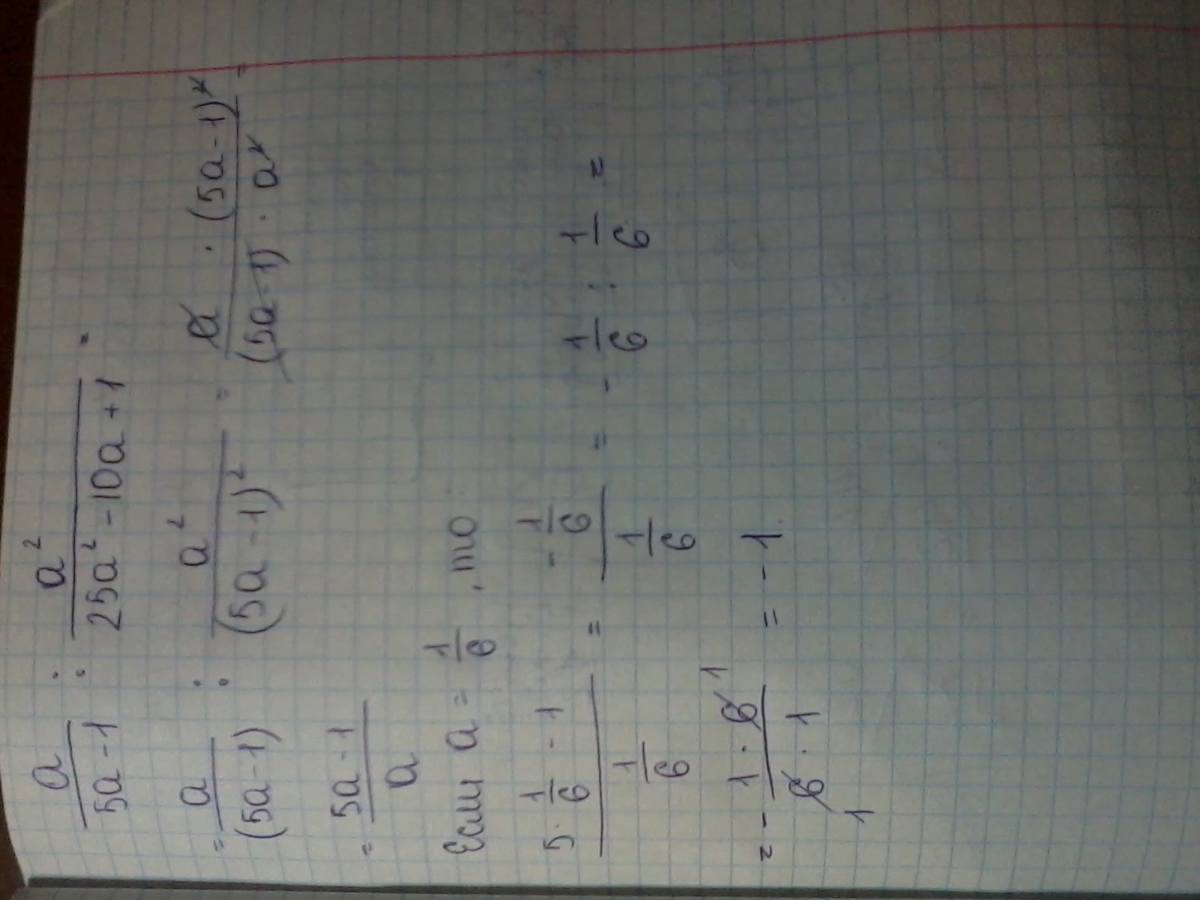 a/(5a-1) : a²/(25a²-10a+1) =
= a/(5a-1) : a²/(5a-1)² = a · (5a-1)²/(5a-1) · a² =
= (5a-1)/a
Если a = 1/6, то
(5 · 1/6 - 1)/(1/6) = (-1/6)/(1/6) = - 1/6 : 1/6 =
= - (1 · 6)/(6 · 1) = - 1.